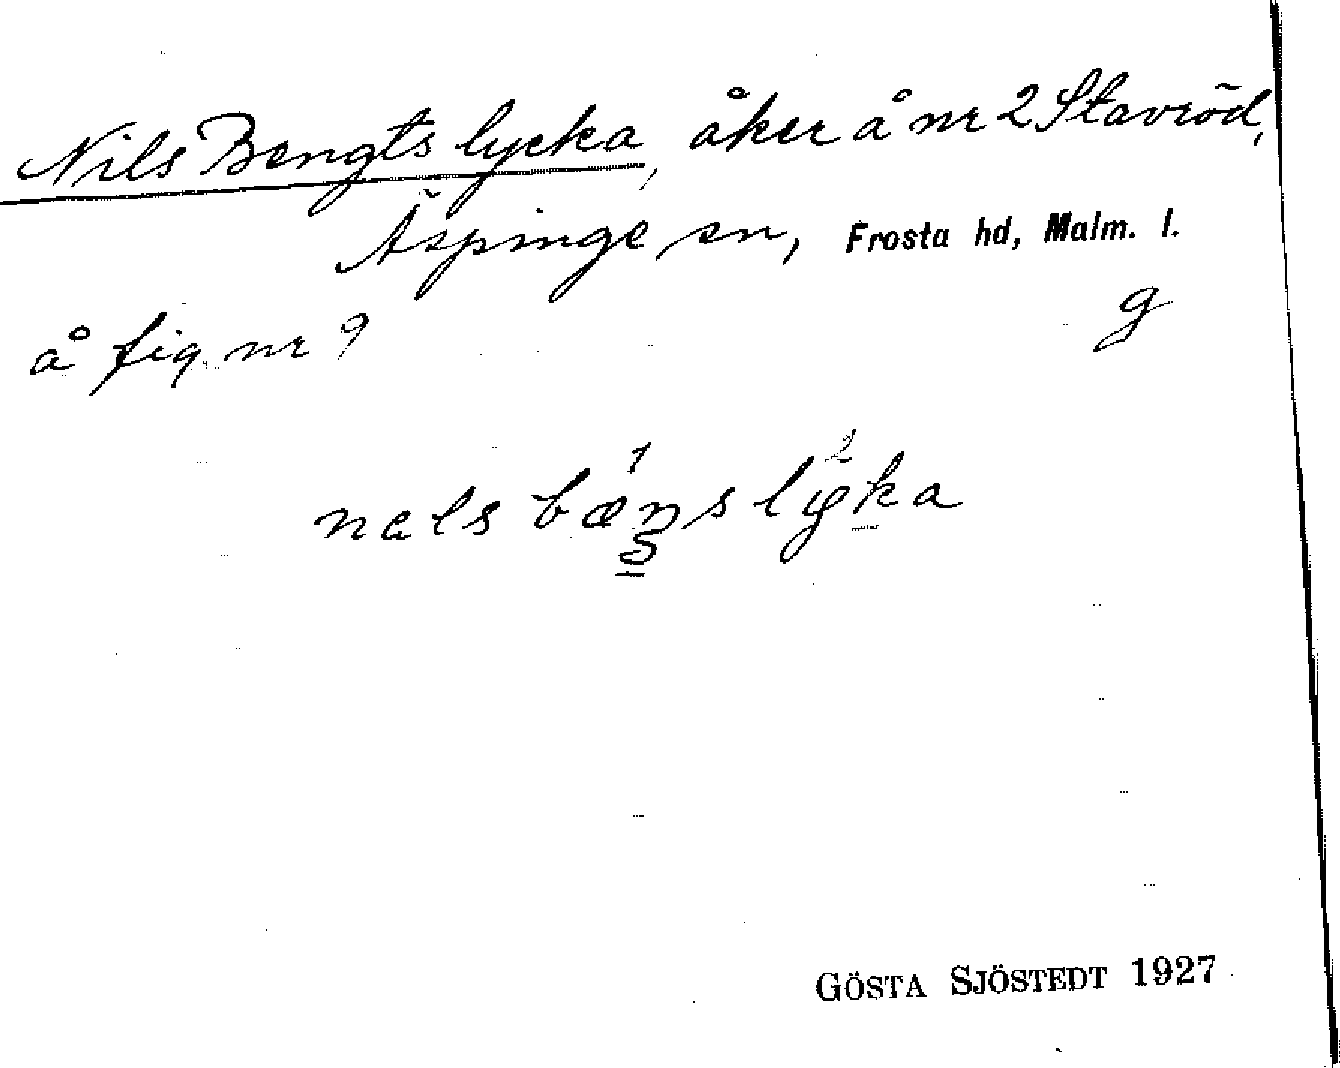 Nils Bengts lycka, åker å nr 2 Stavröd,
Äspinge sn, Frosta hd, Malm. l.
å fig. nr 9 g
1 2
nels bæns lyka
GÖSTA SJÖSTEDT 1927